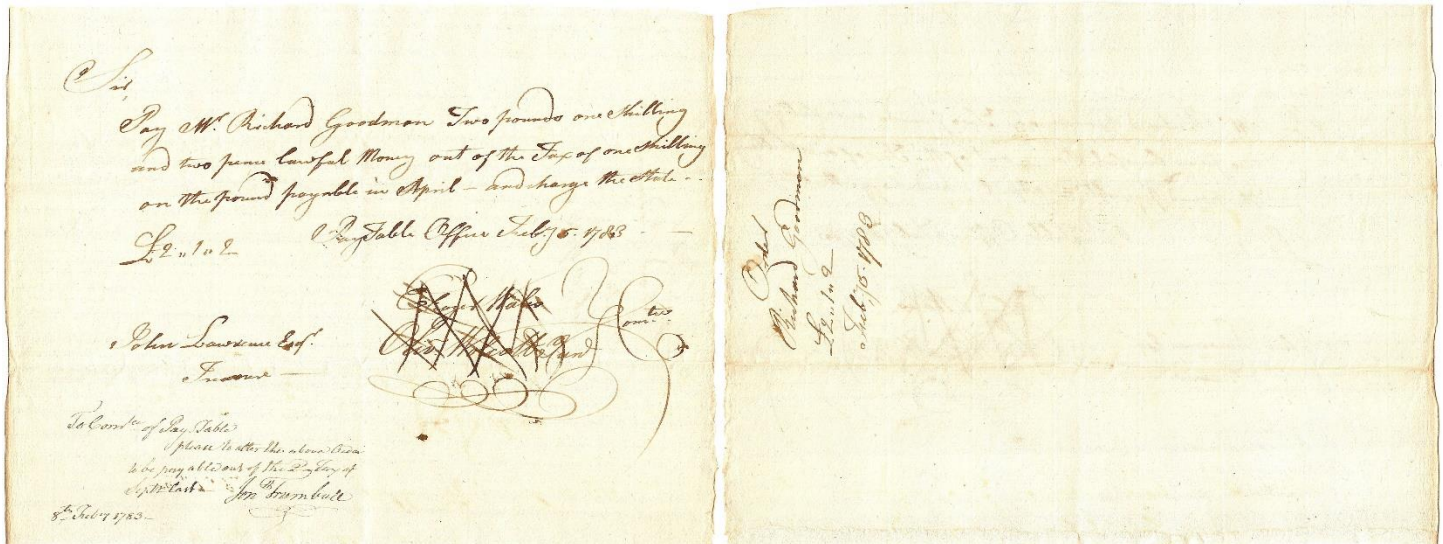 Sir,
Pay Mr Richard Goodman Two pounds one Shilling
and two pence lawful Money out of the Tax of one Shilling
on the pound payable in April - and charge the State -
£2 " 1 " 2 Pay Table Office Feby 6. 1783
John Lawrence Esqr. Comtee
Treasurer
To Comtee of Pay Table
please to alter the above Order
to be payable out of the Tax of
Septr last Jonth Trumbull
8th Feby 1783
Order
Richard Goodman
£2 " 1 " 2
Feby 6. 1783